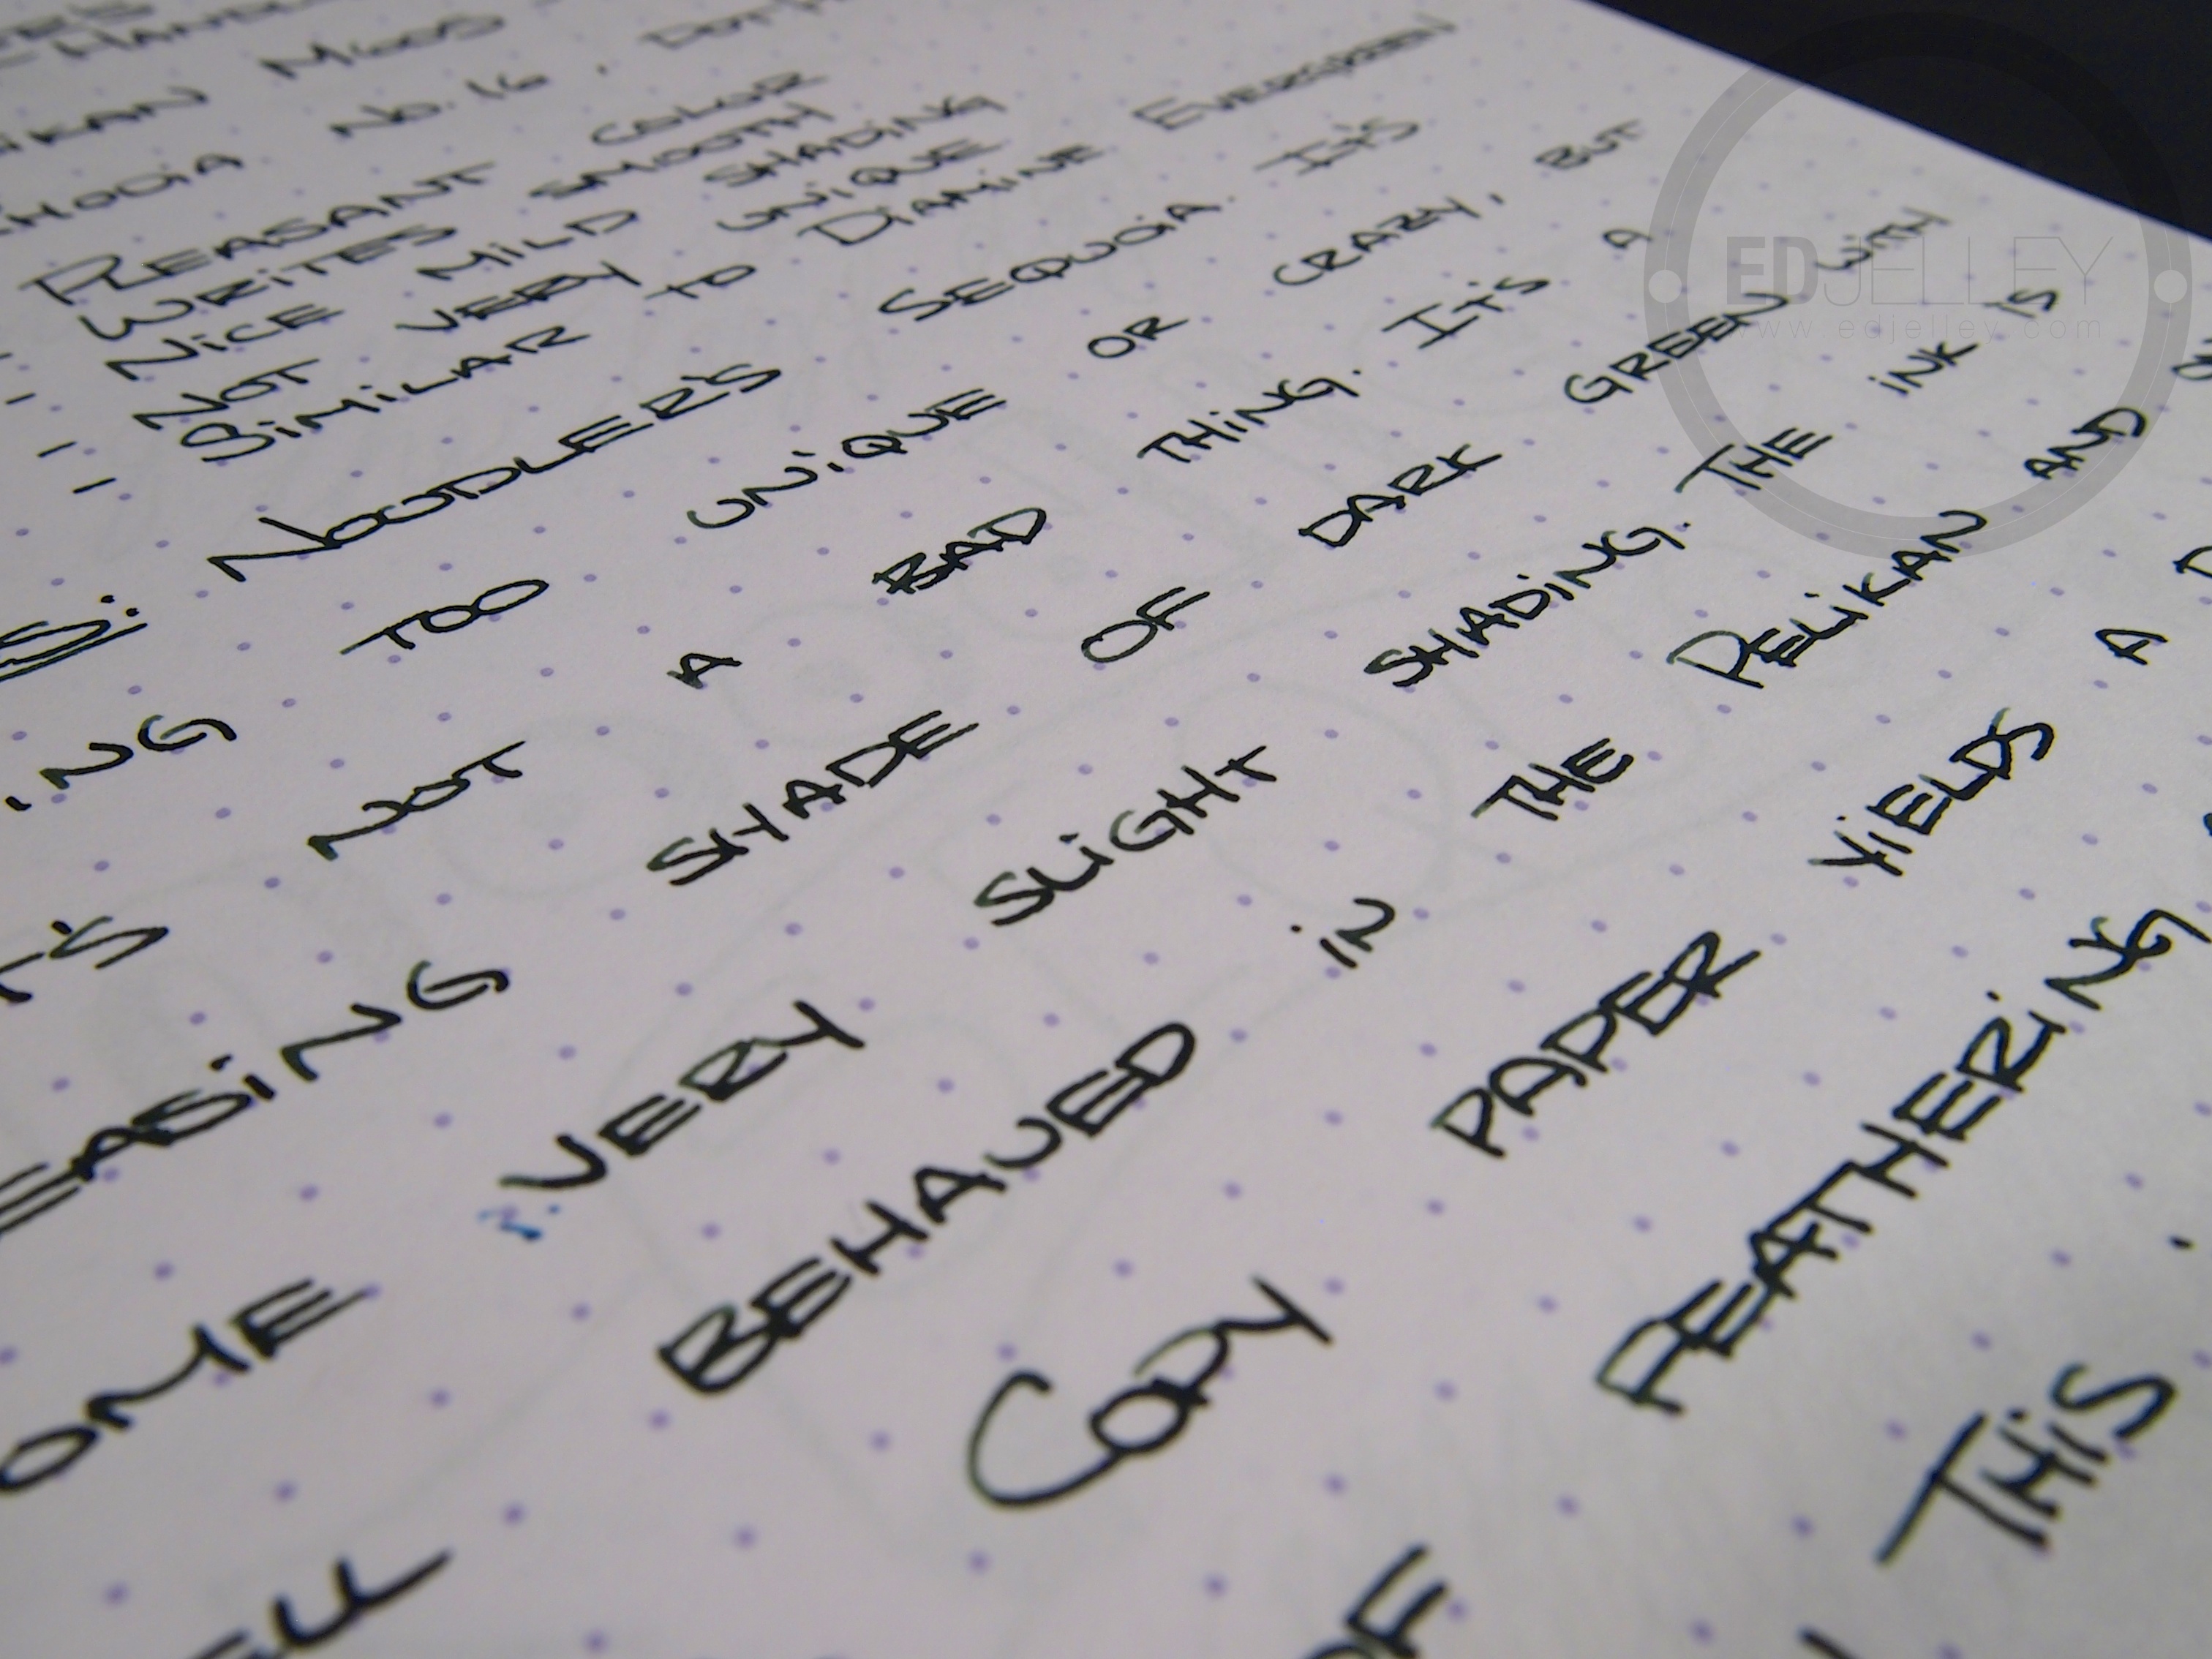 IKAN M605
RHODIA No. 16, DOT
- PLEASANT COLOR
- WRITES SMOOTH
- NICE MILD SHADING
- NOT VERY UNIQUE
- SIMILAR TO DIAMINE EVERGREEN
S: NOODLER'S SEQUOIA. IT'S
ING TOO UNIQUE OR CRAZY, BUT
T'S NOT A BAD THING. IT'S A
EASING SHADE OF DARK GREEN WITH
OME VERY SLIGHT SHADING. THE INK IS
ELL BEHAVED IN THE PELIKAN AND
COPY PAPER YIELDS A
OF FEATHERING.
THIS
EDJELLEY
www.edjelley.com